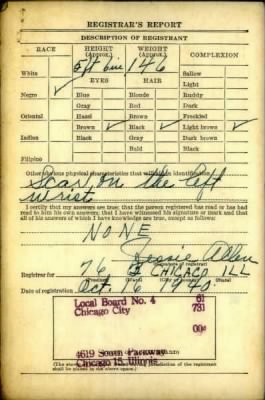 REGISTRAR'S REPORT
DESCRIPTION OF REGISTRANT
RACE HEIGHT (Approx.) WEIGHT (Approx.) COMPLEXION
5 ft 146
White Sallow
EYES HAIR Light
Negro ✓ Blue Blonde Ruddy
Gray Red Dark
Oriental Hazel Brown Freckled
Brown ✓ Black ✓ Light brown ✓
Indian Black Gray Dark brown
Bald Black
Filipino
Other obvious physical characteristics that will aid in identification
Scar on the left
wrist
I certify that my answers are true; that the person registered has read or has had
read to him his own answers; that I have witnessed his signature or mark and that
all of his answers of which I have knowledge are true, except as follows:
NONE
Jessie Allen
(Signature of registrar)
Registrar for 76 CHICAGO ILL
(Precinct) (City or county) (State)
Date of registration Oct. 16 1940
Local Board No. 4 61
Chicago City 731
004
4619 South Parkway
Chicago 15, Illinois